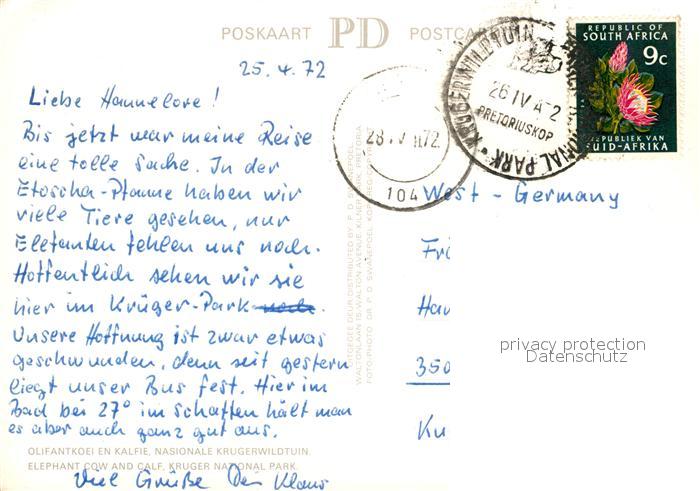 POSKAART PD POSTCARD
25.4.72
Liebe Hannelore!
Bis jetzt war meine Reise
eine tolle Sache. In der
Etoscha-Pfanne haben wir
viele Tiere gesehen, nur
Elefanten fehlen uns noch.
Hoffentlich sehen wir sie
hier im Krüger-Park
Unsere Hoffnung ist zwar etwas
geschwunden, denn seit gestern
liegt unser Bus fest. Hier im
Bad bei 27° im Schatten hält man
es aber auch ganz gut aus.
OLIFANTKOEI EN KALFIE, NASIONALE KRUGERWILDTUIN.
ELEPHANT COW AND CALF, KRUGER NATIONAL PARK.
Viel Grüße Dein Klaus
28 IV 72
104
KRUGERWILDTUIN
26 IV 2
PRETORIUSKOP
NAL PARK
REPUBLIC OF
SOUTH AFRICA
9c
REPUBLIEK VAN
SUID-AFRIKA
West-Germany
350
privacy protection
Datenschutz